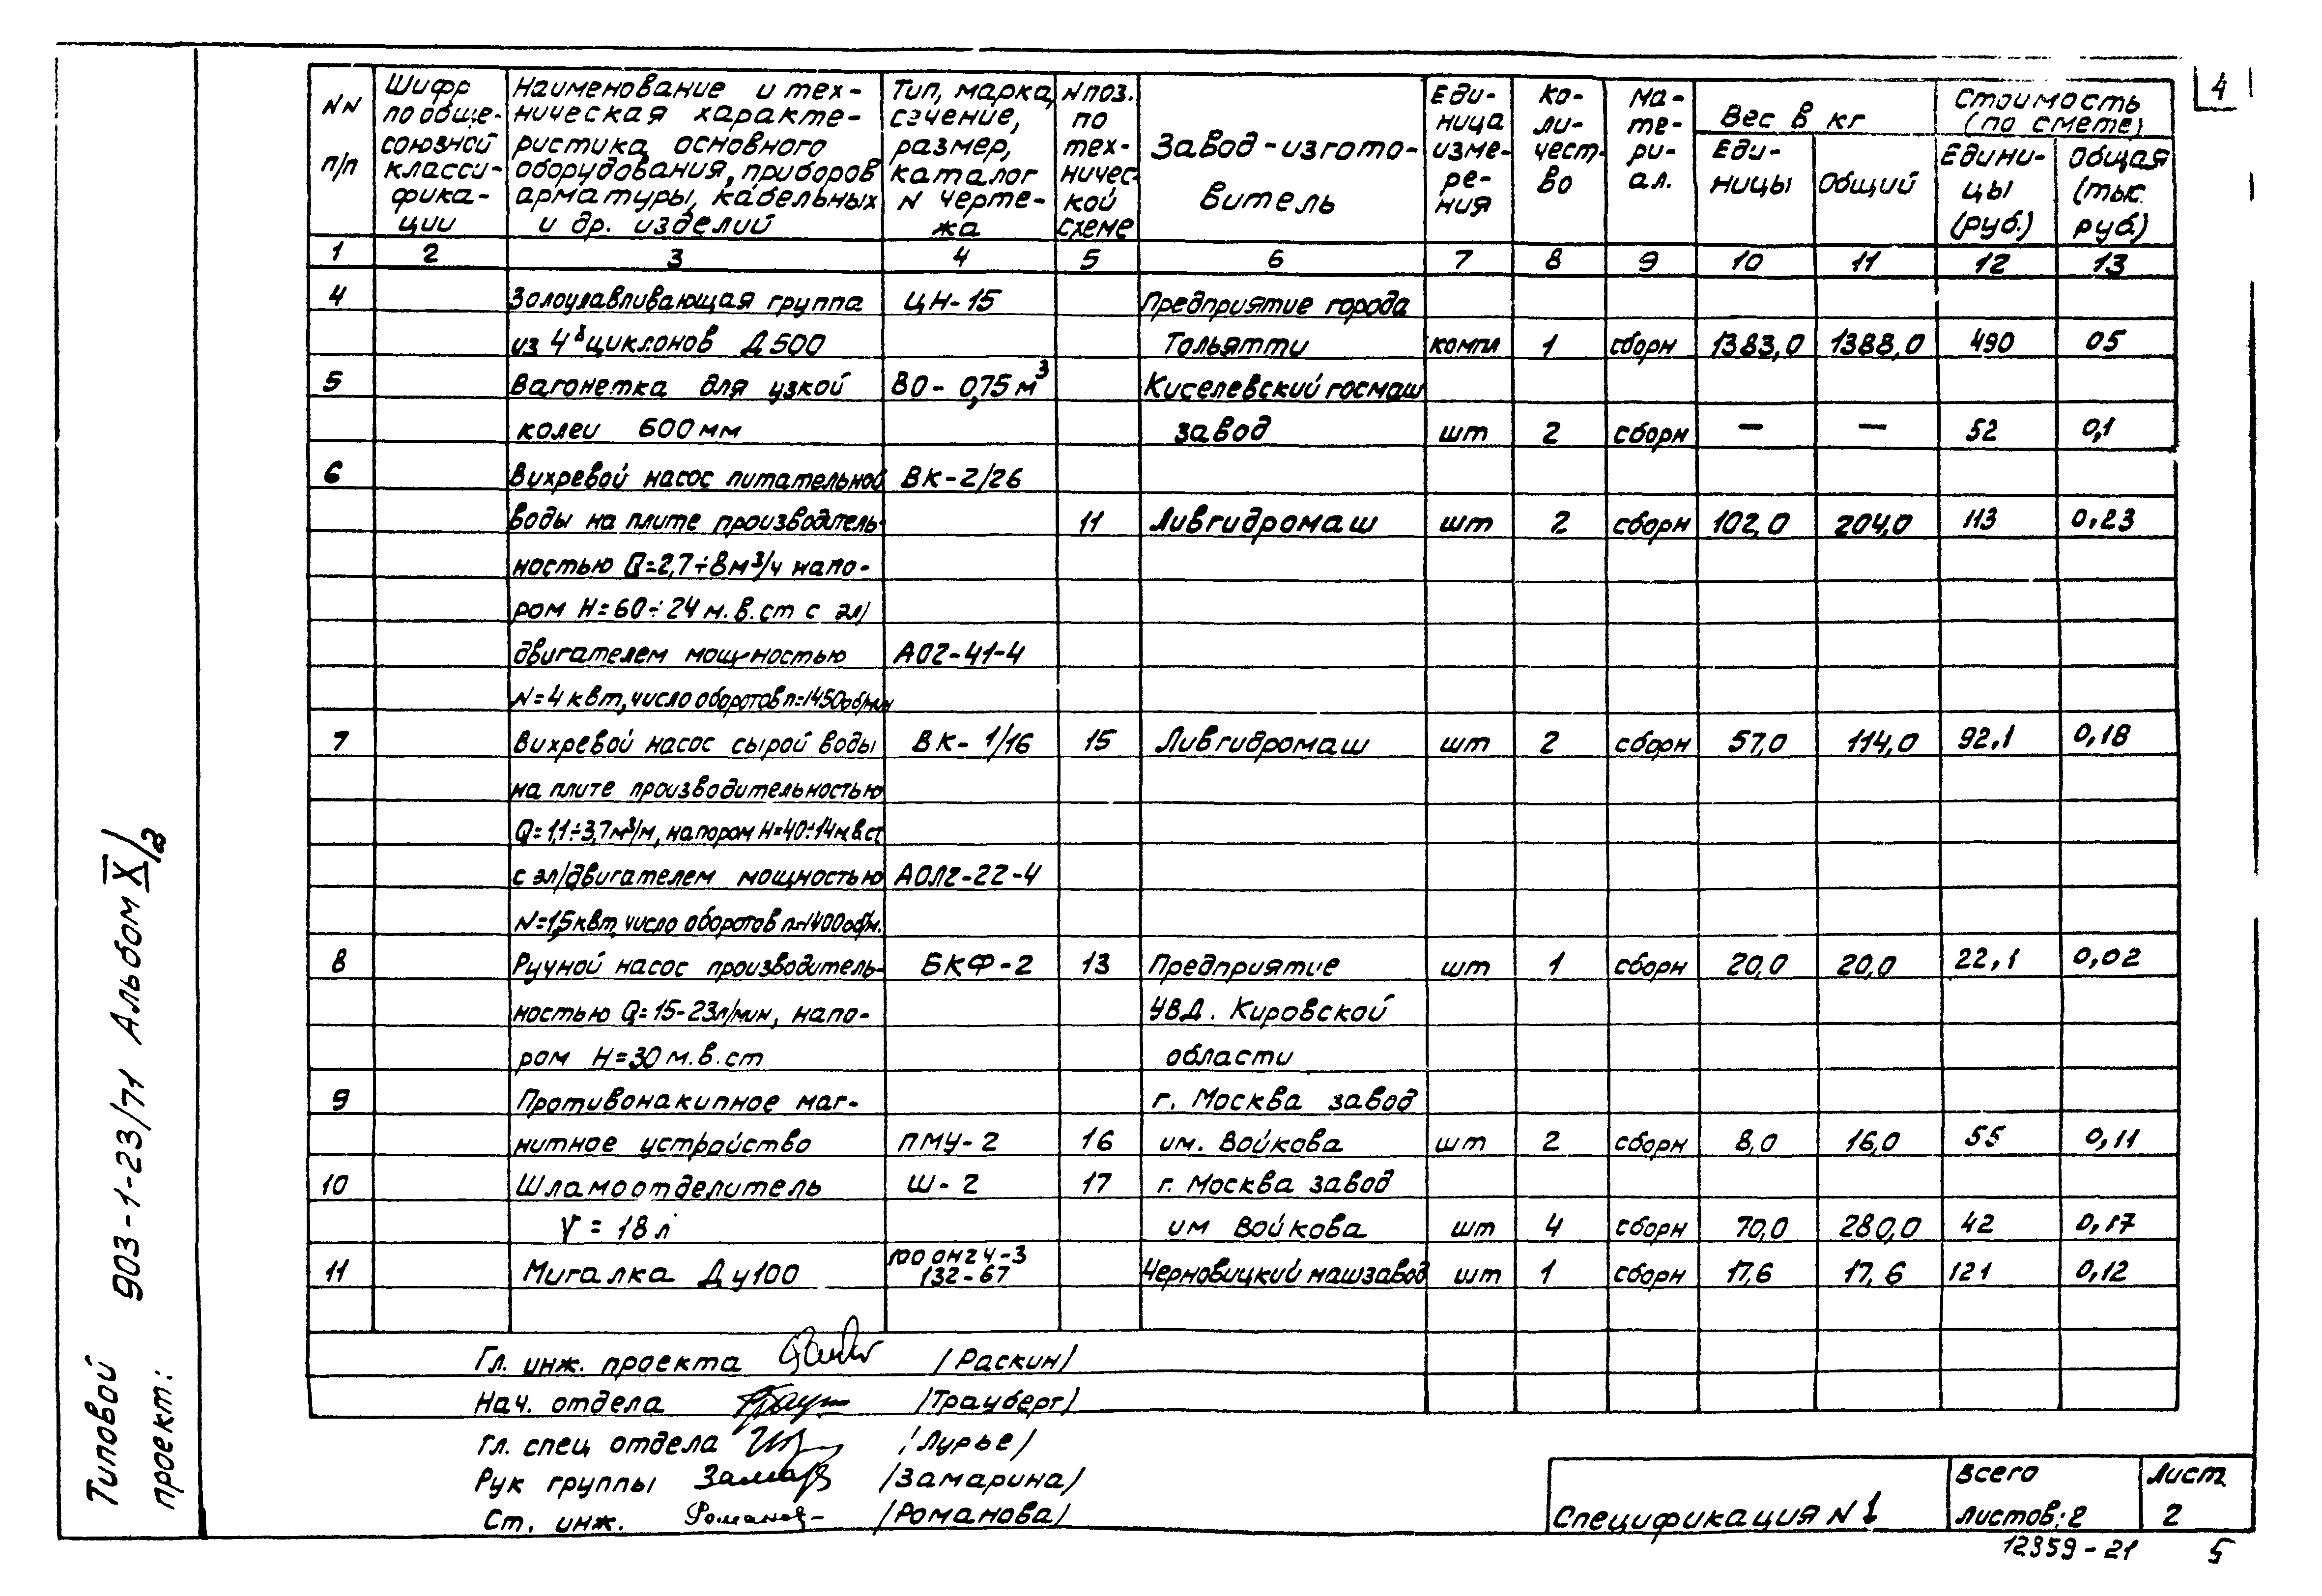 4
NN п/п | Шифр по обще- союзной класси- фика- ции | Наименование и тех- ническая характе- ристика основного оборудования, приборов арматуры, кабельных и др. изделий | Тип, марка, сечение, размер, каталог N черте- жа | N поз. по тех- ничес- кой схеме | Завод-изгото- витель | Еди- ница изме- ре- ния | Ко- ли- чест- во | Ма- те- ри- ал. | Вес в кг | Стоимость (по смете)
Еди- ницы | Общий | Едини- цы (руб.) | Общая (тыс. руб.)
1 2 3 4 5 6 7 8 9 10 11 12 13
4 Золоулавливающая группа ЦН-15 Предприятие города
из 4х циклонов Д500 Тольятти компл 1 сборн 1383,0 1388,0 490 05
5 Вагонетка для узкой ВО-0,75 м³ Киселевский госмаш
колеи 600 мм завод шт 2 сборн — — 52 0,1
6 Вихревой насос питательной ВК-2/26
воды на плите производитель- 11 Ливгидромаш шт 2 сборн 102,0 204,0 113 0,23
ностью Q=2,7÷8м³/ч напо-
ром H=60÷24 м.в.ст с эл/
двигателем мощностью АО2-41-4
N=4 квт, число оборотов n=1450об/мин
7 Вихревой насос сырой воды ВК-1/16 15 Ливгидромаш шт 2 сборн 57,0 114,0 92,1 0,18
на плите производительностью
Q=1,1÷3,7м³/м, напором H=40÷14м.в.ст
с эл/двигателем мощностью АОЛ2-22-4
N=1,5квт, число оборотов n=1400об/м.
8 Ручной насос производитель- БКФ-2 13 Предприятие шт 1 сборн 20,0 20,0 22,1 0,02
ностью Q=15-23л/мин, напо- УВД. Кировской
ром H=30 м.в.ст области
9 Противонакипное маг- г. Москва завод
нитное устройство ПМУ-2 16 им. Войкова шт 2 сборн 8,0 16,0 55 0,11
10 Шламоотделитель Ш-2 17 г. Москва завод
V=18 л им Войкова шт 4 сборн 70,0 280,0 42 0,17
11 Мигалка Ду100 100 ОН24-3 132-67 Черновицкий машзавод шт 1 сборн 17,6 17,6 121 0,12
Гл. инж. проекта /Раскин/
Нач. отдела /Трауберг/
Гл. спец отдела /Лурье/
Рук группы /Замарина/
Ст. инж. /Романова/
Спецификация N 1
Всего листов: 2
Лист 2
12359-21 5
Типовой проект: 903-1-23/71 Альбом X/2